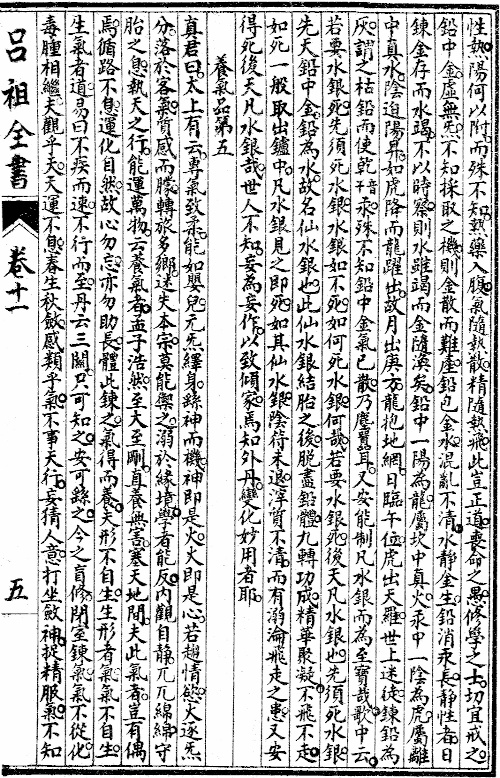 性熱陽何以附而殊不知熱藥入腹氣隨熱散精隨熱飛此豈正道養命之愚修學之士切宜戒之
鉛中金虛無形不知採取之機則金散而難產鉛包金水混亂不清水靜金生鉛消汞長靜性者日
鍊金存而水竭不以時察則水雖竭而金隨漢矣鉛中一陽為龍屬坎中真火汞中一陰為虎屬離
中真水陰迫陽昇如虎降而龍躍出故月出庚方龍抱地網日臨午位虎出天羅世上迷徒鍊鉛為
灰謂之枯鉛而使乾汞殊不知鉛中金氣已散乃塵質耳又安能制凡水銀而為至寶哉歌中云
若要水銀死先須死水銀水銀如不死如何死水銀何哉若要水銀死後天凡水銀也先須死水銀
先天鉛中金鉛為水故名仙水銀也此仙水銀結胎之後脫盡鉛體九轉功成精華聚凝不飛不走
如死一般取出鑪中凡水銀見之即死如其仙水銀陰符未退滓質不清而有溺淪飛走之患又安
得死後天凡水銀哉世人不知妄為妄作以致傾家焉知外丹變化妙用者耶
養氣品第五
真君曰太上有云專氣致柔能如嬰兒兀兀繹身繇神而機神即是火火即是心若趨情慾火逐炁
分落於客氣質感而騰轉旅多鄉迷失本宗莫能與之溺於緣境學者能反內觀自靜兀兀綿綿守
胎之息執天之行能運萬物云養氣者孟子浩然至大至剛直養無害塞天地間夫此氣者豈有偶
焉循路不息運化自然故心勿忘亦勿助長體此鍊之氣得而養夫形不自生生形者氣氣不自生
生氣者道易曰不疾而速不行而至丹云三關只可知之安可繇之今之盲修閉室鍊氣氣不從化
毒腫相繼夫觀乎天天運不息春生秋斂感類乎氣不事天行妄猜人意打坐斂神捉精服氣不知
呂祖全書
卷十一
五